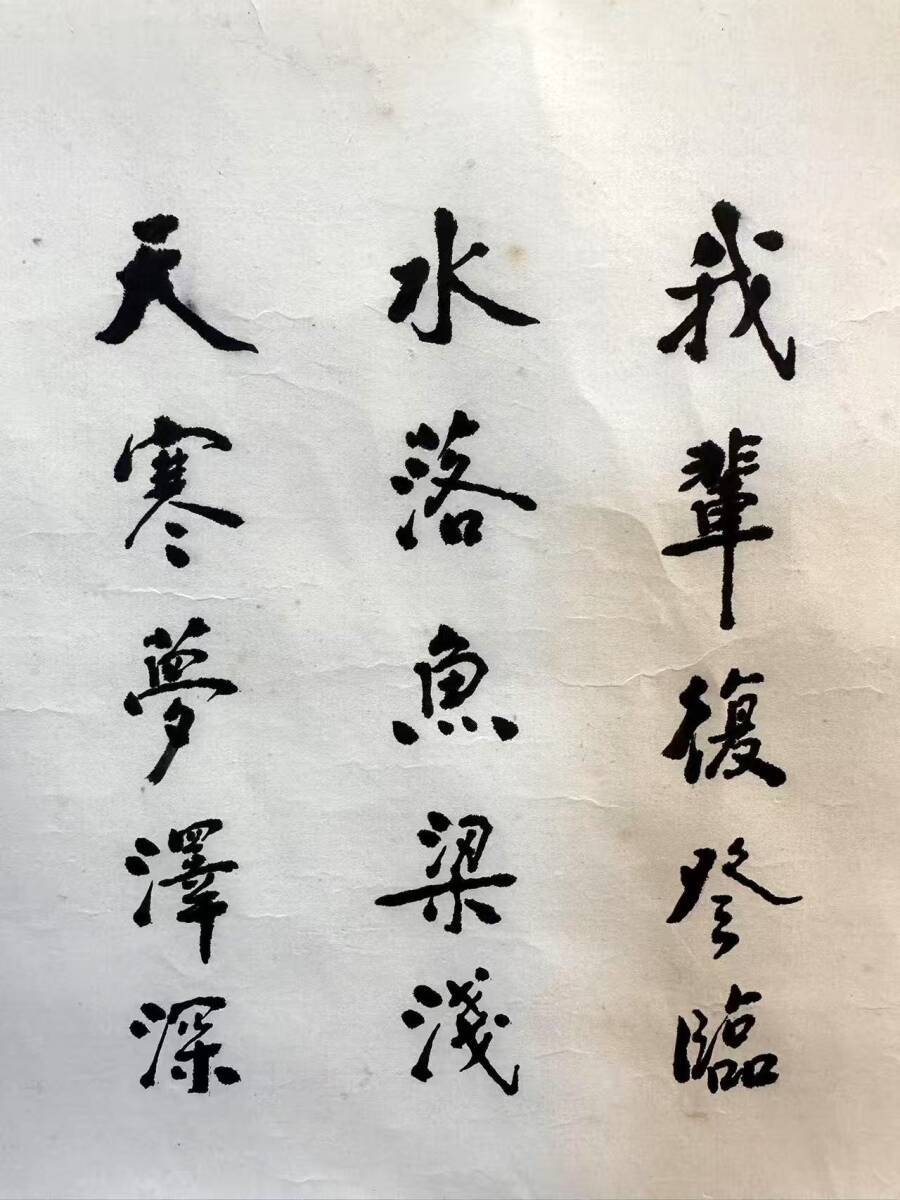 我輩復登臨
水落魚梁淺
天寒夢澤深